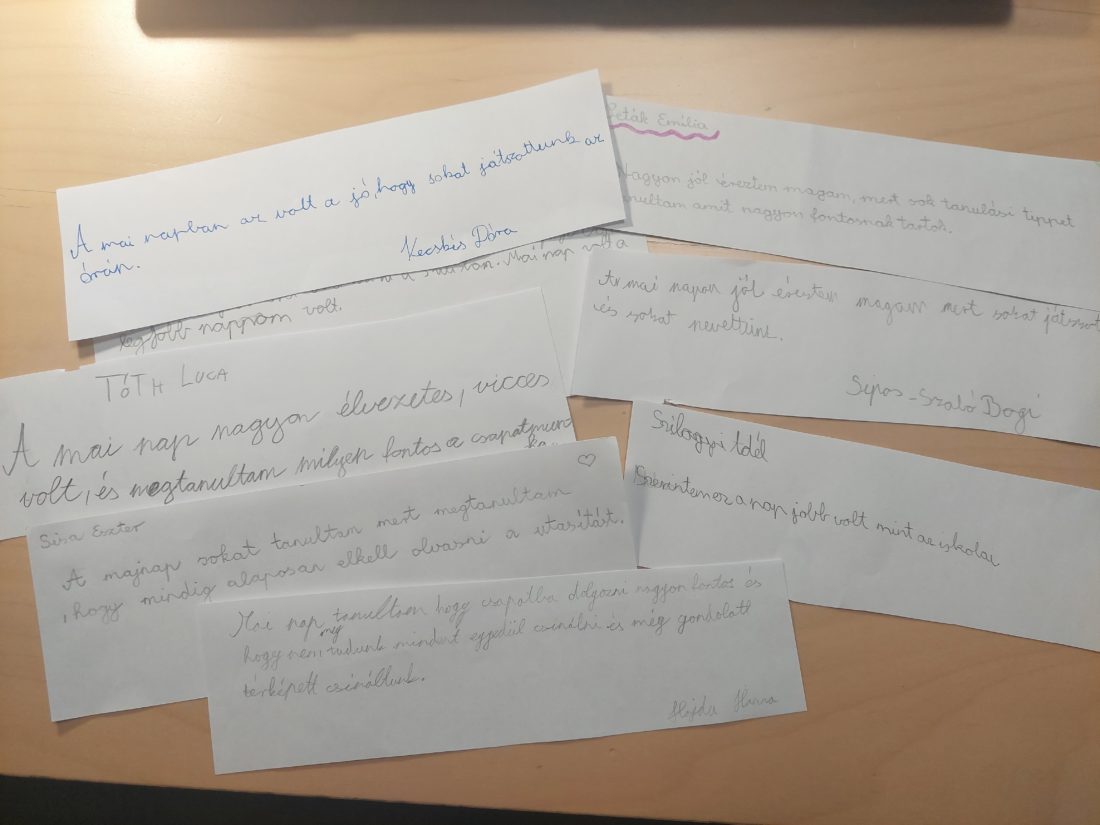 A mai napban az volt a jó, hogy sokat játszottunk az
órán.
Kecskés Dóra
Emília
Nagyon jól éreztem magam, mert sok tanulási tippet
tanultam amit nagyon fontosnak tartok.
Mai nap volt a
legjobb náppom volt.
Az mai napon jól éreztem magam mert sokat játszot
és sokat nevettünk.
Sipos-Szabó Bogi
TÓTH LUCA
A mai nap nagyon élvezetes, vicces
volt, és megtanultam milyen fontos a csapatmun
ka
Szilágyi Adél
Szerintem ez a nap jobb volt mint az iskolai
Sisa Eszter
A majnap sokat tanultam mert megtanultam
, hogy mindig alaposan elkell olvasni a utasítást.
Mai nap tanultam hogy csapatba dolgozni nagyon fontos és
hogy nem tudunk mindent egyedül csinálni és még gondolatt
meg
térképett csináltunk.
Hajda Hanna